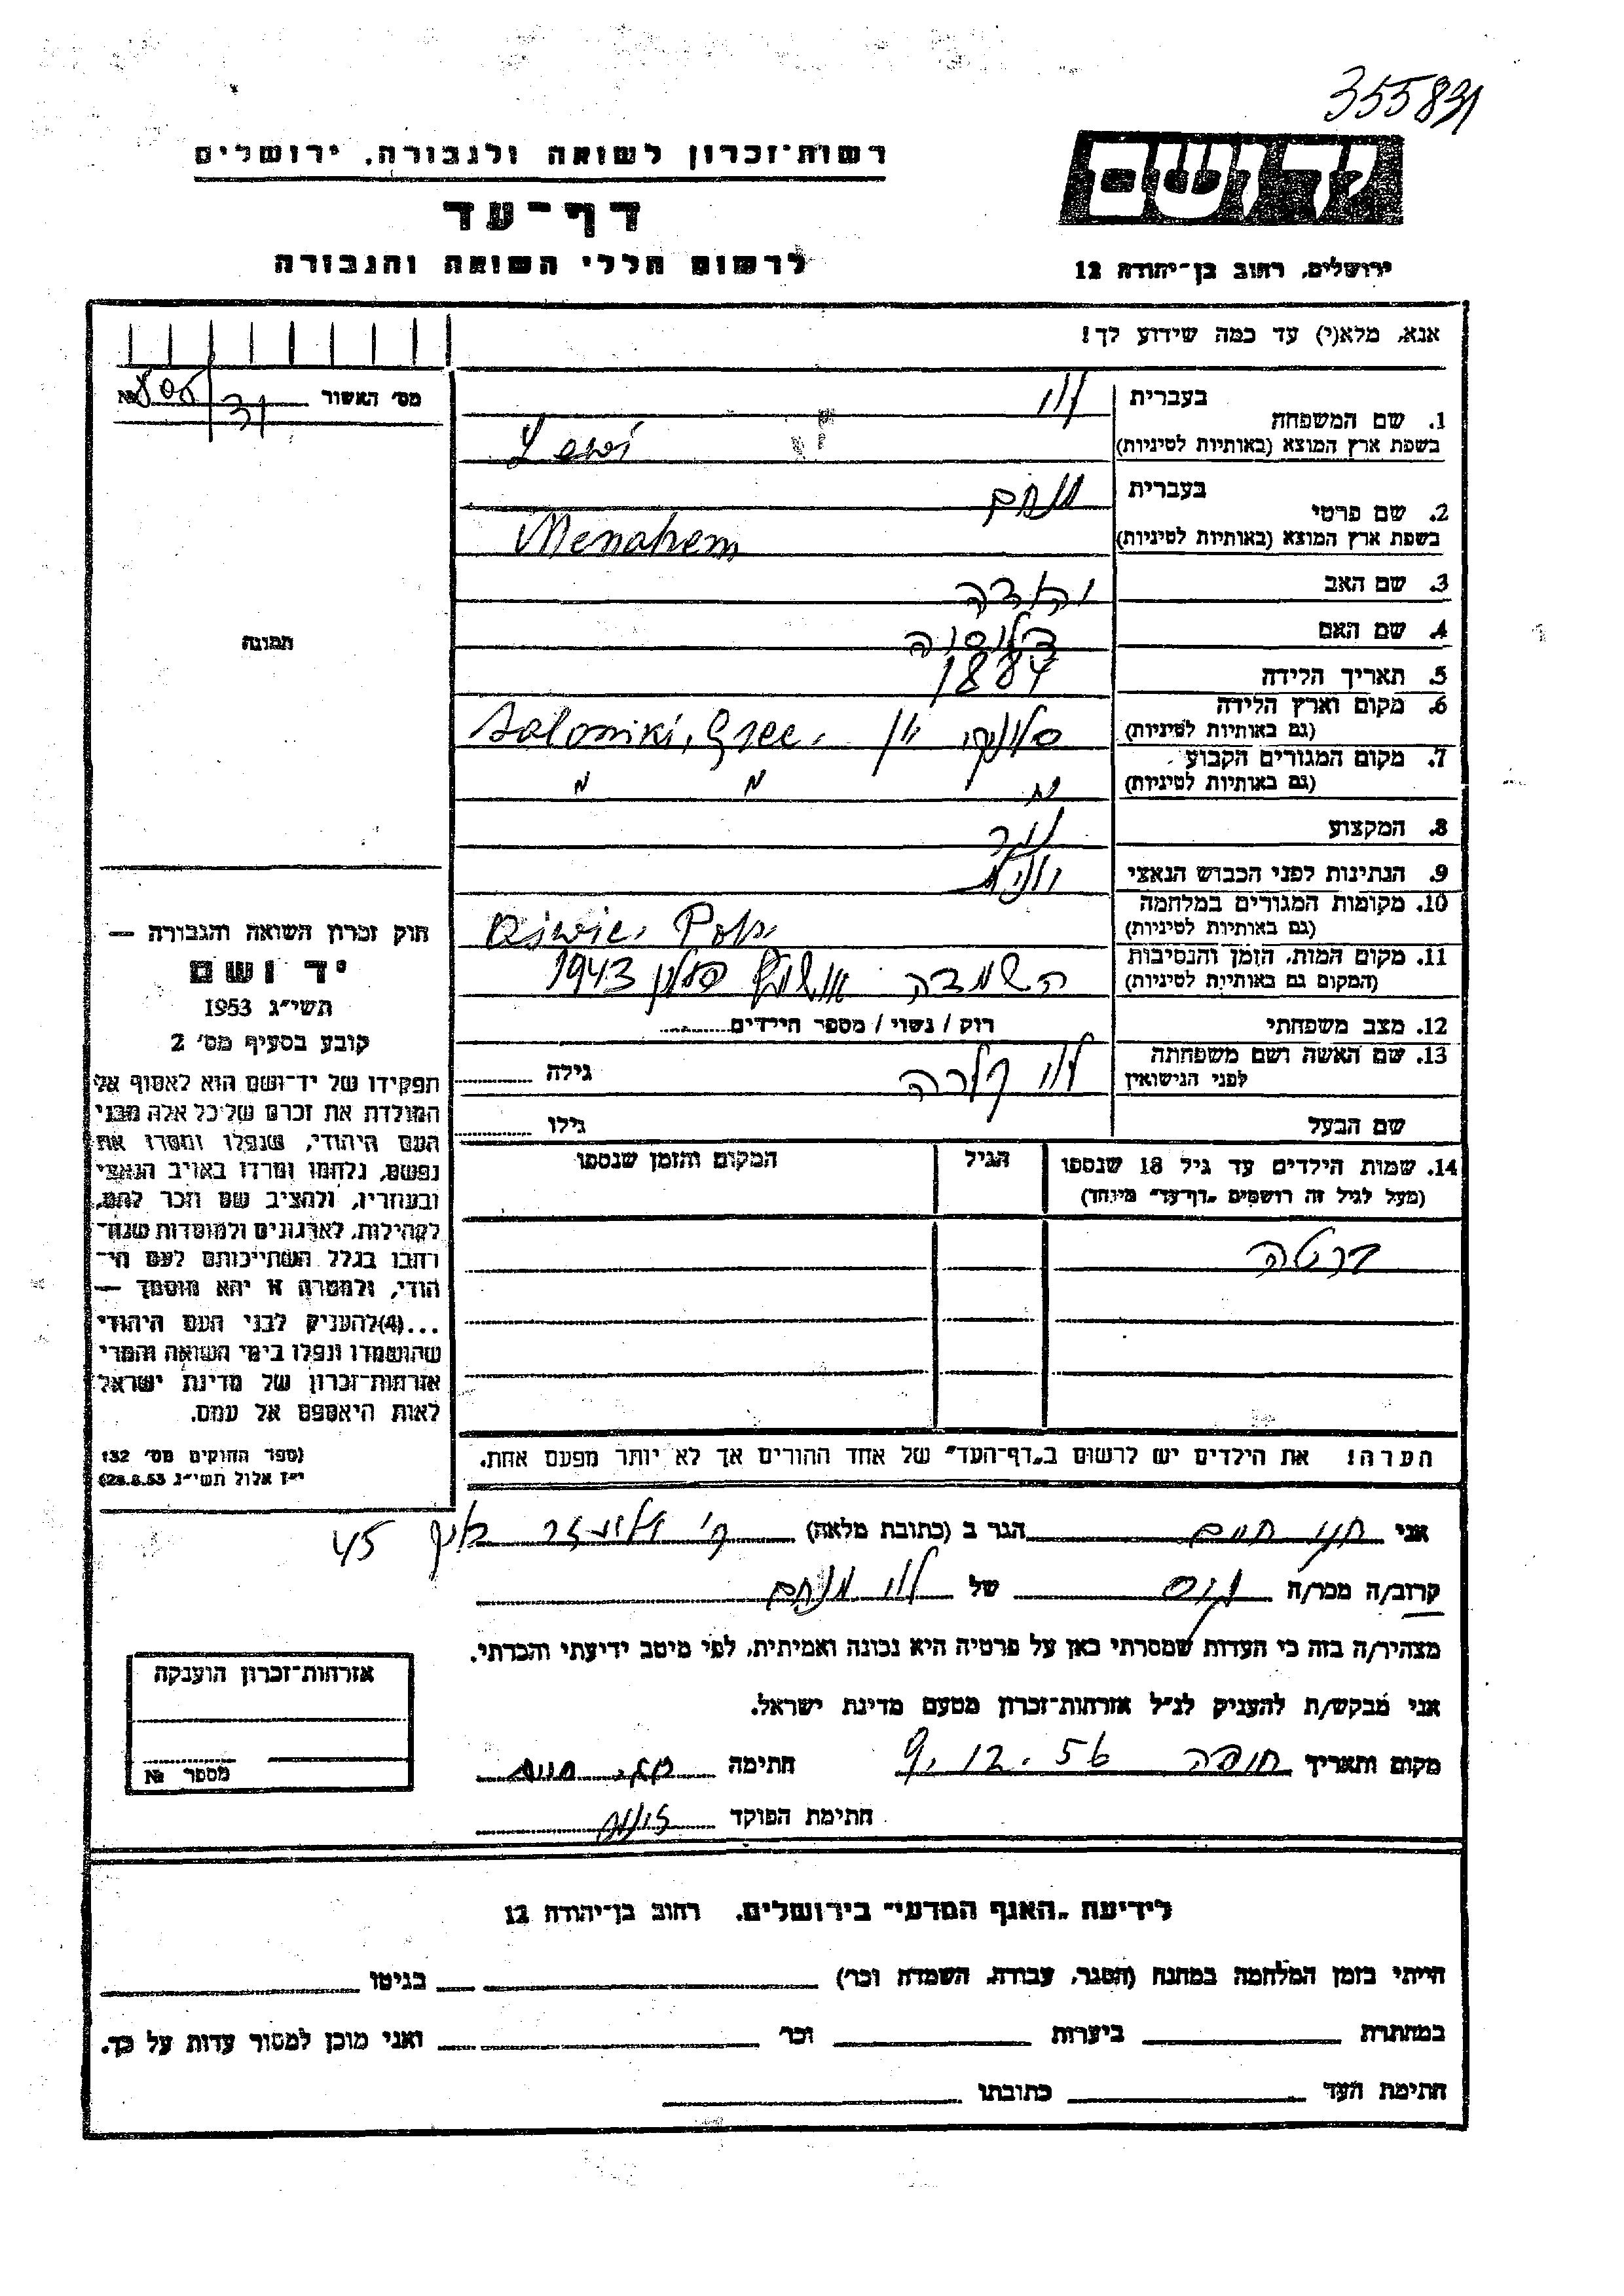 355831
רשות־זכרון לשואה ולגבורה, ירושלים
דף־עד
לרשום חללי השואה והגבורה
יד ושם
ירושלים, רחוב בן־יהודה 12
אנא, מלא(י) עד כמה שידוע לך!
מס׳ האשור
№ 805/31
תמונה
1. שם המשפחה
בעברית לוי
בשפת ארץ המוצא (באותיות לטיניות) Lewi
2. שם פרטי
בעברית מנחם
בשפת ארץ המוצא (באותיות לטיניות) Menahem
3. שם האב
4. שם האם
5. תאריך הלידה 1884
6. מקום וארץ הלידה
(גם באותיות לטיניות) סלוניקי יון Saloniki, Grec.
7. מקום המגורים הקבוע
(גם באותיות לטיניות) " " "
8. המקצוע
9. הנתינות לפני הכבוש הנאצי יונית
10. מקומות המגורים במלחמה
(גם באותיות לטיניות)
11. מקום המות, הזמן והנסיבות
(המקום גם באותיות לטיניות) השמדה 1943
12. מצב משפחתי רוק / נשוי / מספר הילדים
13. שם האשה ושם משפחתה
לפני הנישואין לוי קלרה גילה
שם הבעל גילו
14. שמות הילדים עד גיל 18 שנספו
(מעל לגיל זה רושמים „דף־עד" מיוחד)
הגיל
המקום והזמן שנספו
ברטה
הערה! את הילדים יש לרשום ב„דף־העד" של אחד ההורים אך לא יותר מפעם אחת.
חוק זכרון השואה והגבורה —
יד ושם
תשי״ג 1953
קובע בסעיף מס׳ 2
תפקידו של יד־ושם הוא לאסוף אל
המולדת את זכרם של כל אלה מבני
העם היהודי, שנפלו ומסרו את
נפשם, נלחמו ומרדו באויב הנאצי
ובעוזריו, ולהציב שם וזכר להם,
לקהילות, לארגונים ולמוסדות שנח־
רבו בגלל השתייכותם לעם הי־
הודי, ולמטרה זו יהא מוסמך —
...(4)להעניק לבני העם היהודי
שהושמדו ונפלו בימי השואה והמרי
אזרחות־זכרון של מדינת ישראל
לאות היאספם אל עמם.
(ספר החוקים מס׳ 132
י״ז אלול תשי״ג 28.8.53)
אני חיים הגר ב (כתובת מלאה) 45
קרוב/ה מכר/ה גיס של לוי מנחם
מצהיר/ה בזה כי העדות שמסרתי כאן על פרטיה היא נכונה ואמיתית, לפי מיטב ידיעתי והכרתי.
אני מבקש/ת להעניק לנ״ל אזרחות־זכרון מטעם מדינת ישראל.
מקום ותאריך חיפה 9.12.56 חתימה
חתימת הפוקד
אזרחות־זכרון הוענקה
מספר №
לידיעת „האגף המדעי" בירושלים, רחוב בן־יהודה 12
הייתי בזמן המלחמה במחנה (הסגר, עבודה, השמדה וכר׳) בגיטו
במחתרת ביערות וכר׳ ואני מוכן למסור עדות על כך.
חתימת העד כתובתו